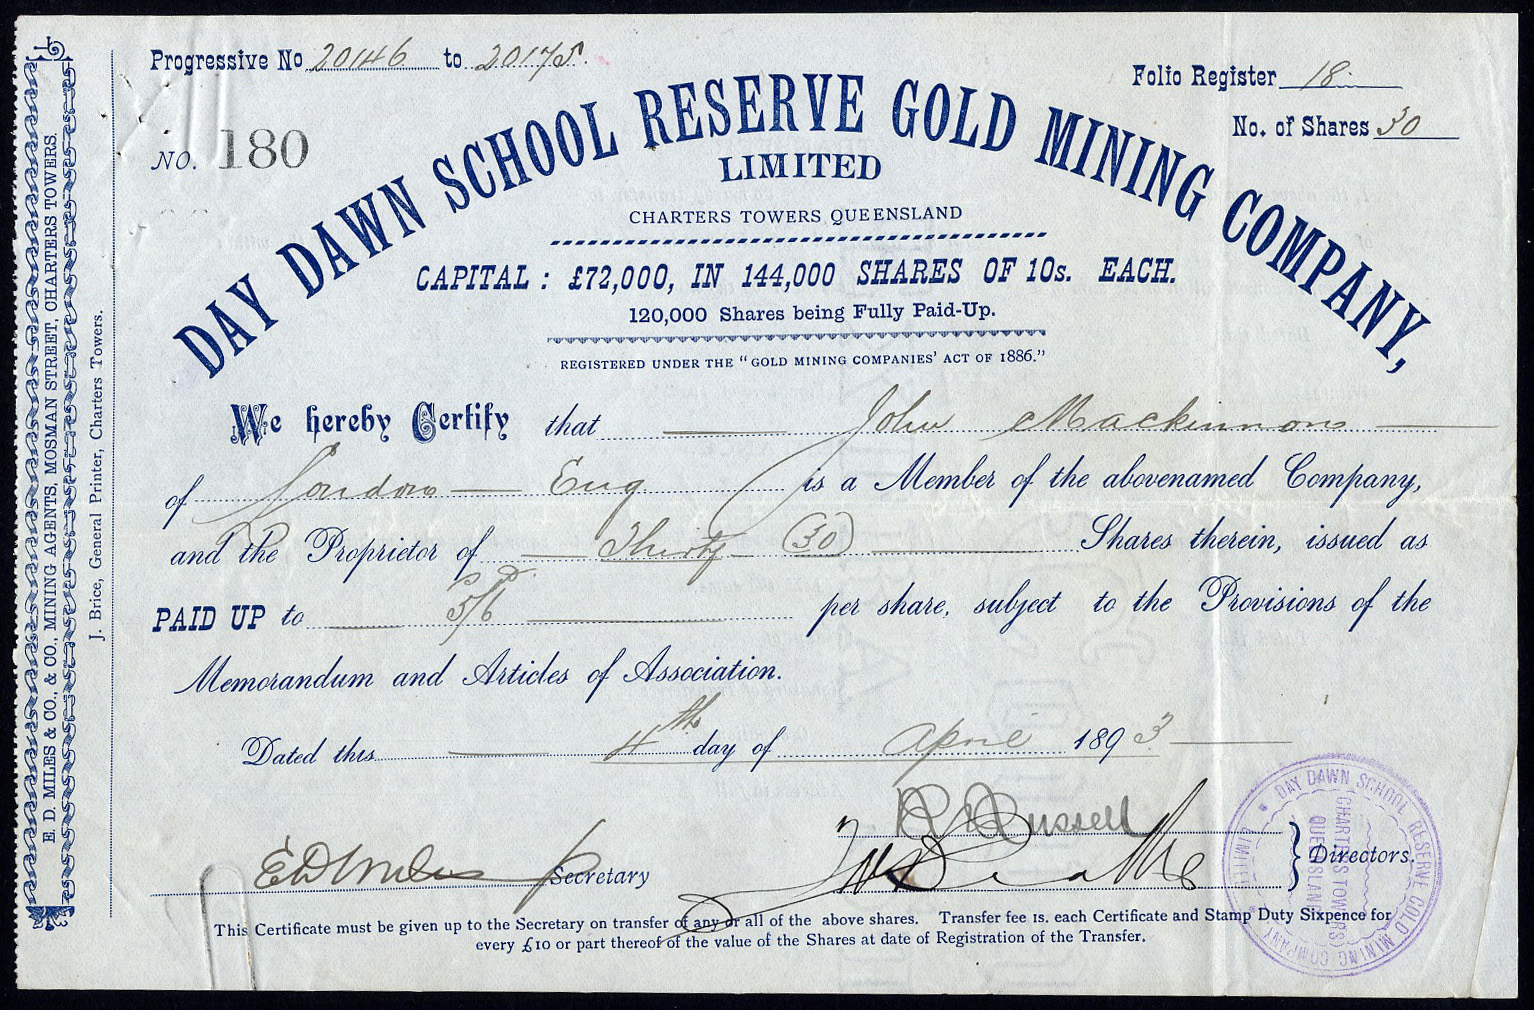 Progressive No 20146 to 20175.
Folio Register 18
No. of Shares 30
NO. 180
DAY DAWN SCHOOL RESERVE GOLD MINING COMPANY,
LIMITED
CHARTERS TOWERS QUEENSLAND
CAPITAL: £72,000, IN 144,000 SHARES OF 10s. EACH.
120,000 Shares being Fully Paid-Up.
REGISTERED UNDER THE "GOLD MINING COMPANIES' ACT OF 1886."
We hereby Certify that John Mackinnon
of London Eng is a Member of the abovenamed Company,
and the Proprietor of Thirty (30) Shares therein, issued as
PAID UP to 5/6 per share, subject to the Provisions of the
Memorandum and Articles of Association.
Dated this 4th day of April 1893
Russell
Directors.
E D Miles Secretary
This Certificate must be given up to the Secretary on transfer of any or all of the above shares. Transfer fee 1s. each Certificate and Stamp Duty Sixpence for
every £10 or part thereof of the value of the Shares at date of Registration of the Transfer.
E. D. MILES & CO., & CO., MINING AGENTS, MOSMAN STREET, CHARTERS TOWERS.
J. Brice, General Printer, Charters Towers.
DAY DAWN SCHOOL RESERVE GOLD MINING COMPANY LIMITED
CHARTERS TOWERS
QUEENSLAND